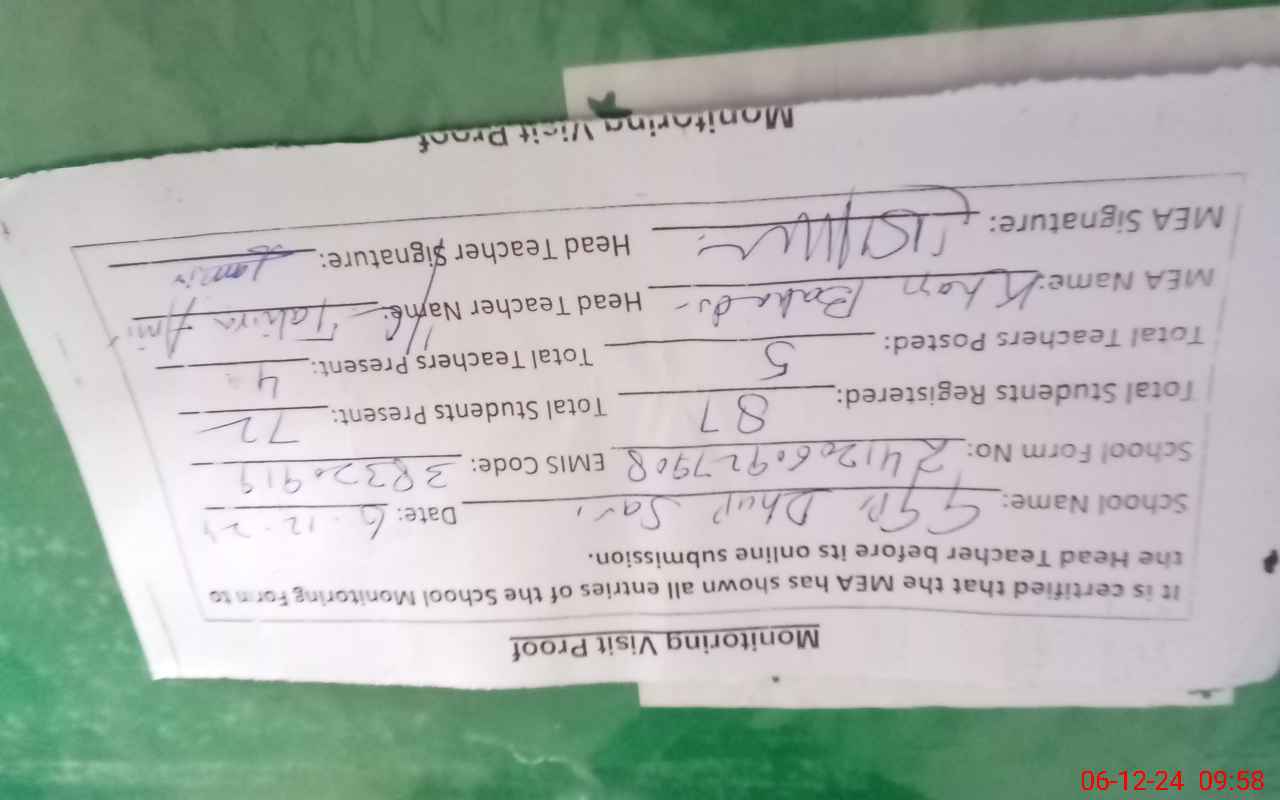 Monitoring Visit Proof
It is certified that the MEA has shown all entries of the School Monitoring Form to
the Head Teacher before its online submission.
School Name: GGPS Dhup Sari Date: 6.12.24
School Form No: 2412060927908 EMIS Code: 38320919
Total Students Registered: 87 Total Students Present: 72
Total Teachers Posted: 5 Total Teachers Present: 4
MEA Name: Khan Bahadur Head Teacher Name: Tahira
MEA Signature: Head Teacher Signature:
Monitoring Visit Proof
06-12-24 09:58